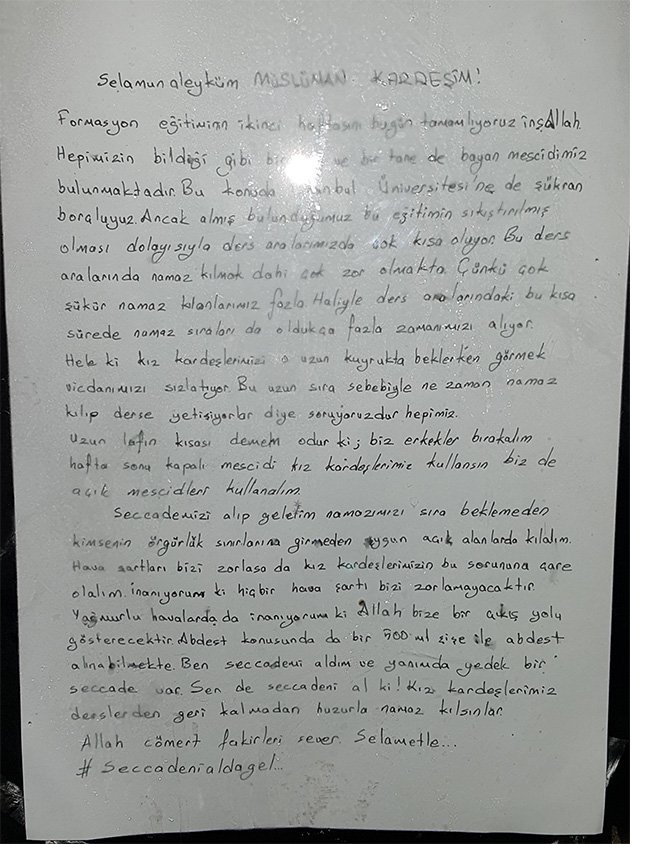 Selamun aleyküm MÜSLÜMAN KARDEŞİM!
Formasyon eğitiminin ikinci haftasını bugün tamamlıyoruz inşAllah.
Hepimizin bildiği gibi bir ve bir tane de bayan mescidimiz
bulunmaktadır. Bu konuda Üniversitesi'ne de şükran
borçluyuz. Ancak almış bulunduğumuz bu eğitimin sıkıştırılmış
olması dolayısıyla ders aralarımızda çok kısa oluyor. Bu ders
aralarında namaz kılmak dahi çok zor olmakta. Çünkü çok
şükür namaz kılanlarımız fazla. Haliyle ders aralarındaki bu kısa
sürede namaz sıraları da oldukça fazla zamanımızı alıyor.
Hele ki kız kardeşlerimizi o uzun kuyrukta beklerken görmek
vicdanımızı sızlatıyor. Bu uzun sıra sebebiyle ne zaman namaz
kılıp derse yetişiyorlar diye soruyoruzdur hepimiz.
Uzun lafın kısası demem odur ki; biz erkekler bırakalım
hafta sonu kapalı mescidi kız kardeşlerimiz kullansın biz de
açık mescidleri kullanalım.
Seccademizi alıp gelelim namazımızı sıra beklemeden
kimsenin özgürlük sınırlarına girmeden uygun açık alanlarda kılalım.
Hava şartları bizi zorlasa da kız kardeşlerimizin bu sorununa çare
olalım. İnanıyorum ki hiçbir hava şartı bizi zorlamayacaktır.
Yağmurlu havalarda da inanıyorum ki Allah bize bir çıkış yolu
gösterecektir. Abdest konusunda da bir 500 ml şişe ile abdest
alınabilmekte. Ben seccademi aldım ve yanımda yedek bir
seccade var. Sen de seccadeni al ki! Kız kardeşlerimiz
derslerden geri kalmadan huzurla namaz kılsınlar.
Allah cömert fakirleri sever. Selametle...
# Seccadenialdagel...